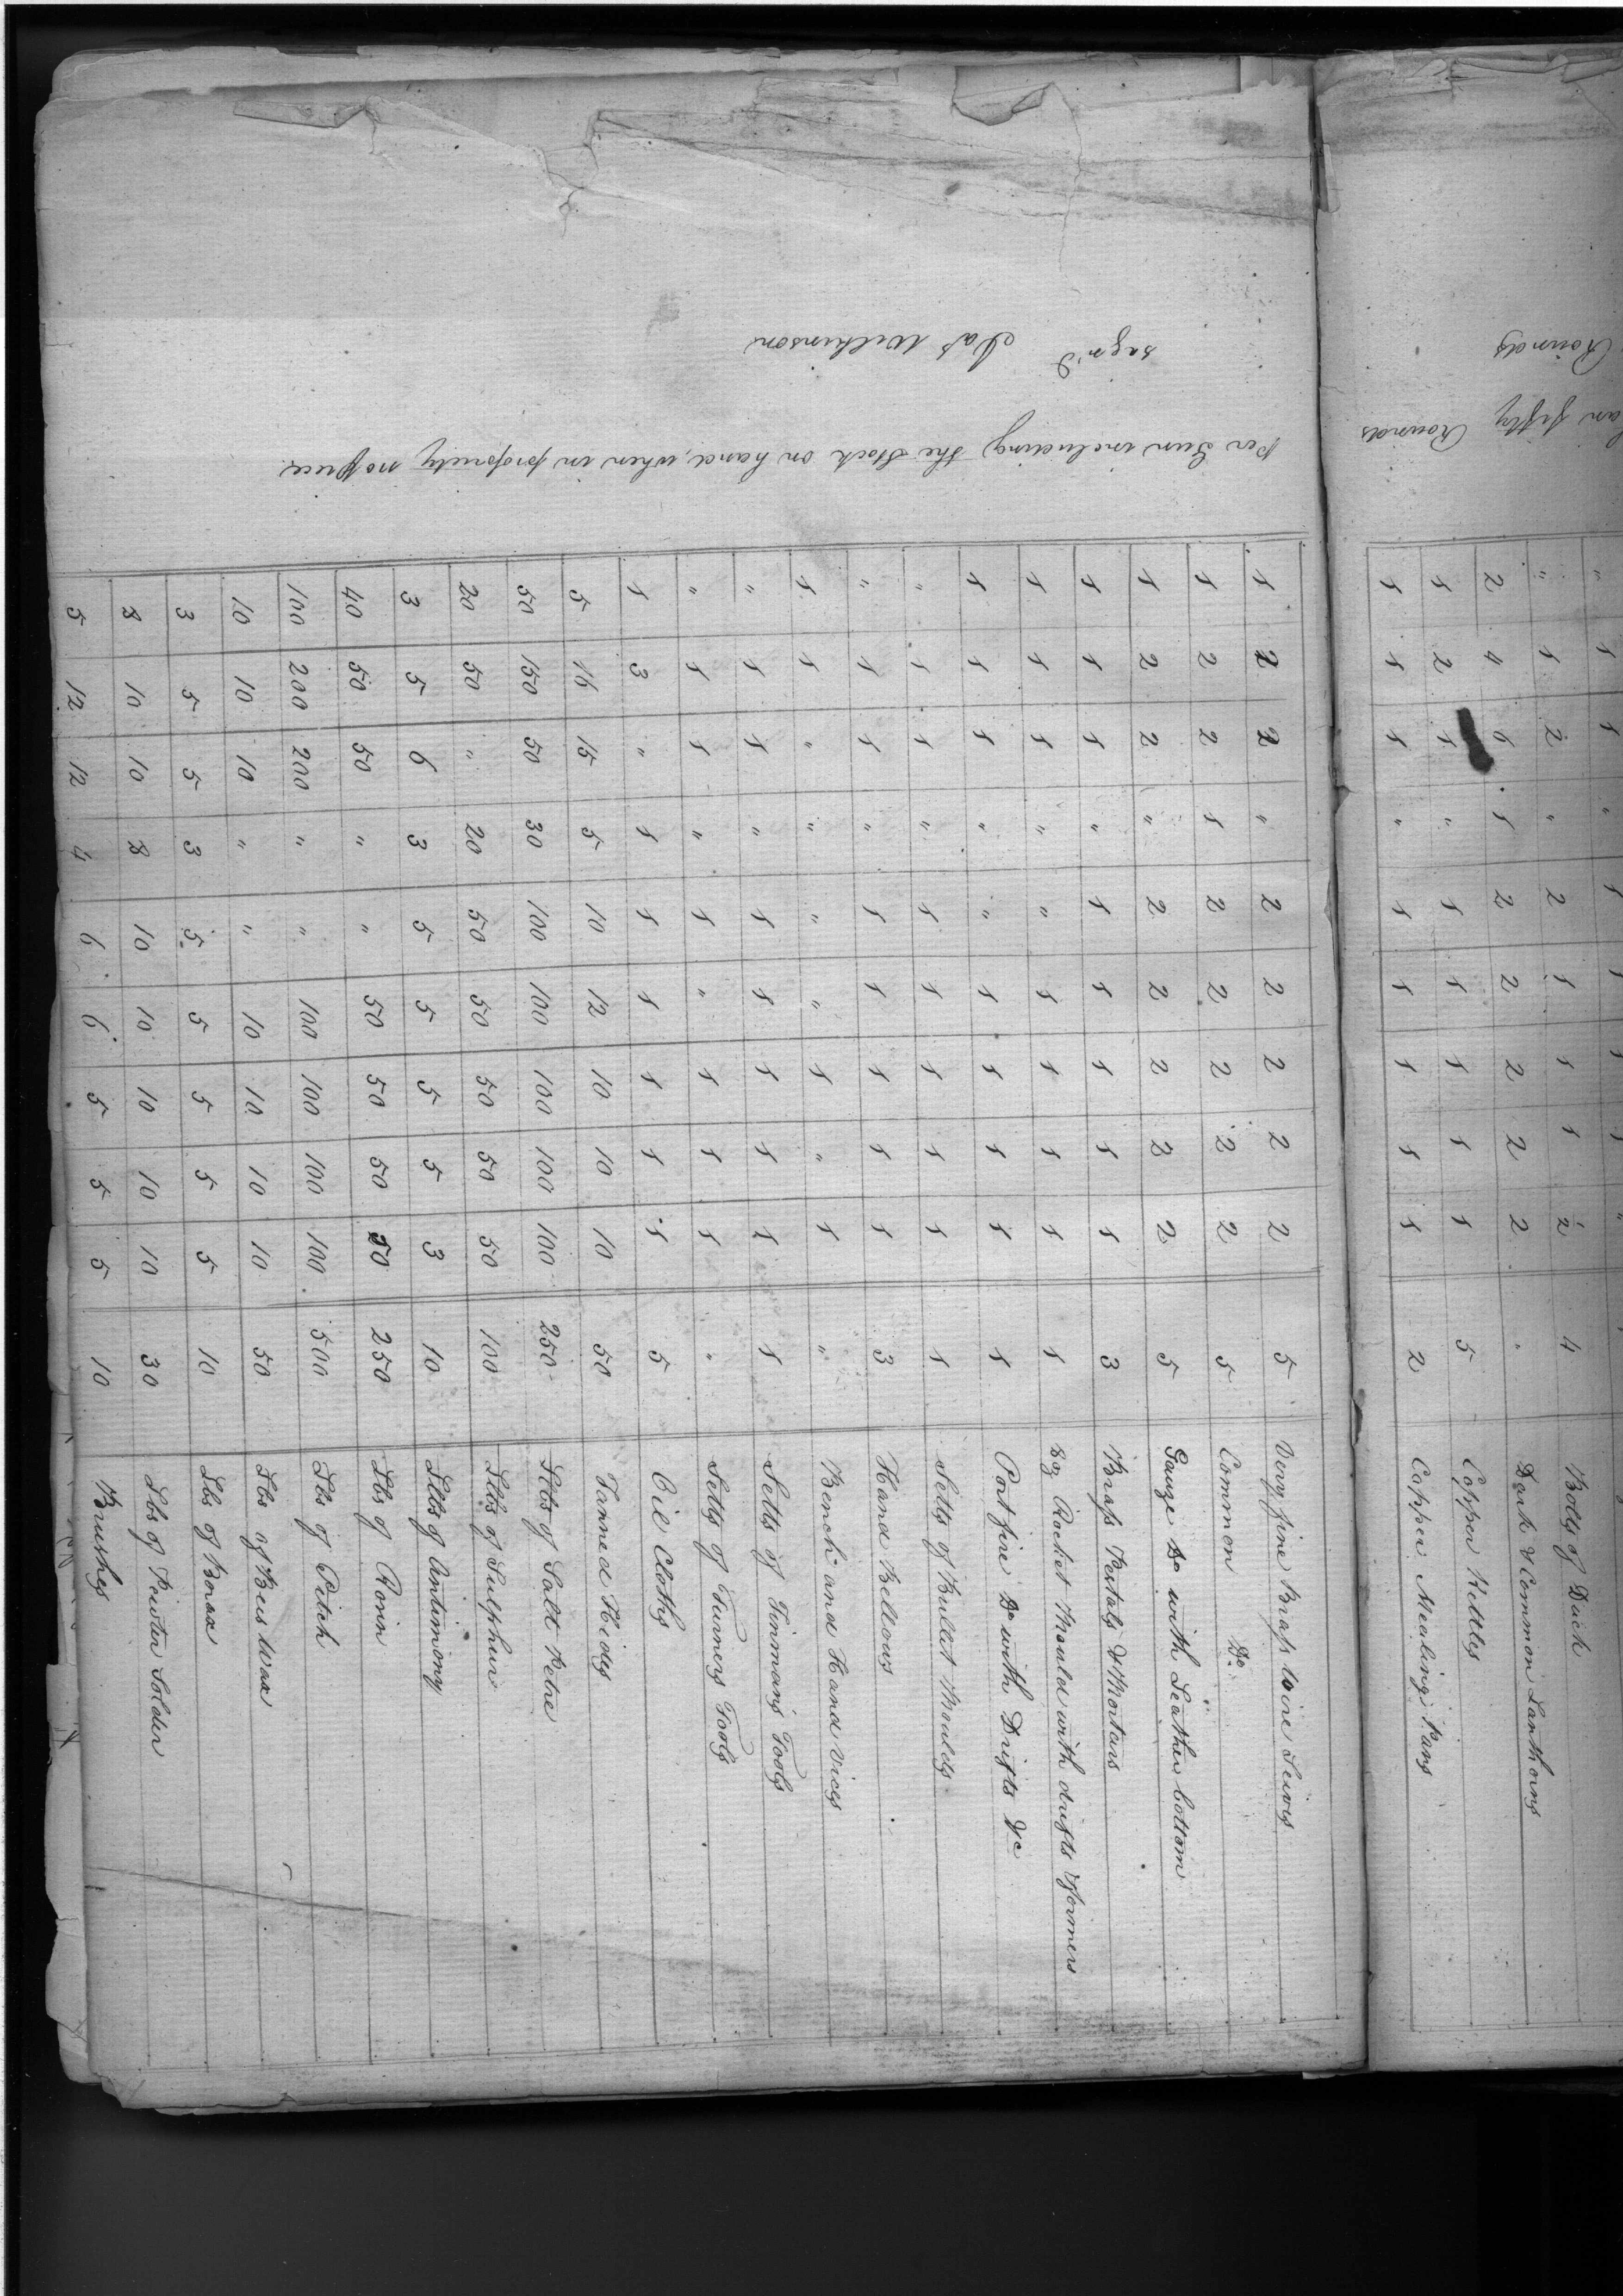 an fifty Rounds
Rounds
" 1 2 " 2 1 1 1 2 4 Bolts of Duck
2 4 6 1 2 2 2 2 2 " Dark & Common Lanthorns
1 2 1 " 1 1 1 1 1 5 Copper Kettles
1 1 1 " 1 1 1 1 1 2 Copper Mealing Pans
1 2 2 " 2 2 2 2 2 5 Very fine Brass wire Seives
1 2 2 1 2 2 2 2 2 5 Common Do
1 2 2 " 2 2 2 2 2 5 Gauze Do with Leather bottom
1 1 1 " 1 1 1 1 1 3 Brass Pestals & Mortars
1 1 1 " " 1 1 1 1 1 8oz Rocket Mould with drifts & formers
1 1 1 " " 1 1 1 1 1 Port fire Do with Drifts &c
" 1 1 " 1 1 1 1 1 1 Setts of Bullet Moulds
" 1 1 " 1 1 1 1 1 3 Hand Bellows
1 1 " " " " 1 " 1 " Bench and Hand vices
" 1 1 " 1 1 1 1 1 1 Setts of Tinmans Tools
" 1 1 " 1 " 1 1 1 " Setts of Turners Tools
1 3 " 1 1 1 1 1 1 5 Oil Cloths
5 16 15 5 10 12 10 10 10 50 Tanned Hides
50 150 50 30 100 100 100 100 100 250 Lbs of Salt Petre
20 50 " 20 50 50 50 50 50 100 Lbs of Sulphur
3 5 6 3 5 5 5 5 3 10 Lbs of Antimony
40 50 50 " " 50 50 50 50 250 Lbs of Rosin
100 200 200 " " 100 100 100 100 500 Lbs of Pitch
10 10 10 " " 10 10 10 10 50 Lbs of Bees Wax
3 5 5 3 5 5 5 5 5 10 Lbs of Borax
8 10 10 8 10 10 10 10 10 30 Lbs of Pewter Solder
5 12 12 4 6 6 5 5 5 10 Brushes
per Gun including the Stock on hand, when in propriety no piece
sign'd Jas Wilkinson